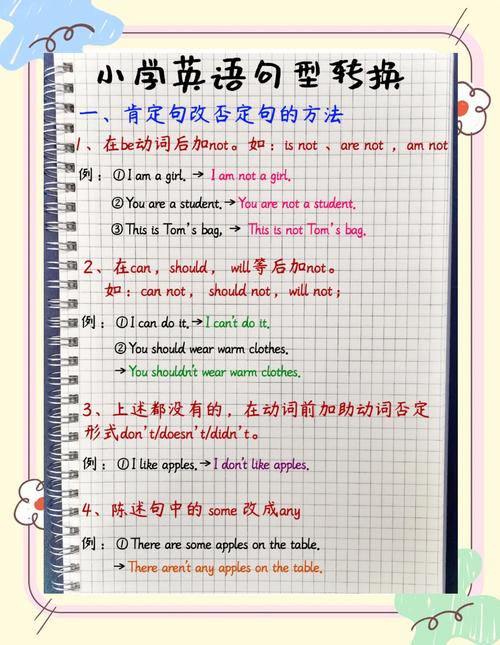 小学英语句型转换
一、肯定句改否定句的方法
1、在be动词后加not。如：is not 、are not ，am not
例：①I am a girl. → I am not a girl.
②You are a student.→You are not a student.
③This is Tom's bag, → This is not Tom's bag.
2、在can，should， will等后加not。
如：can not， should not，will not；
例：①I can do it.→I can't do it.
②You should wear warm clothes.
→You shouldn't wear warm clothes.
3、上述都没有的，在动词前加助动词否定
形式don't/doesn't/didn't。
例：①I like apples.→I don't like apples.
4、陈述句中的 some 改成any
例：①There are some apples on the table.
→There aren't any apples on the table.